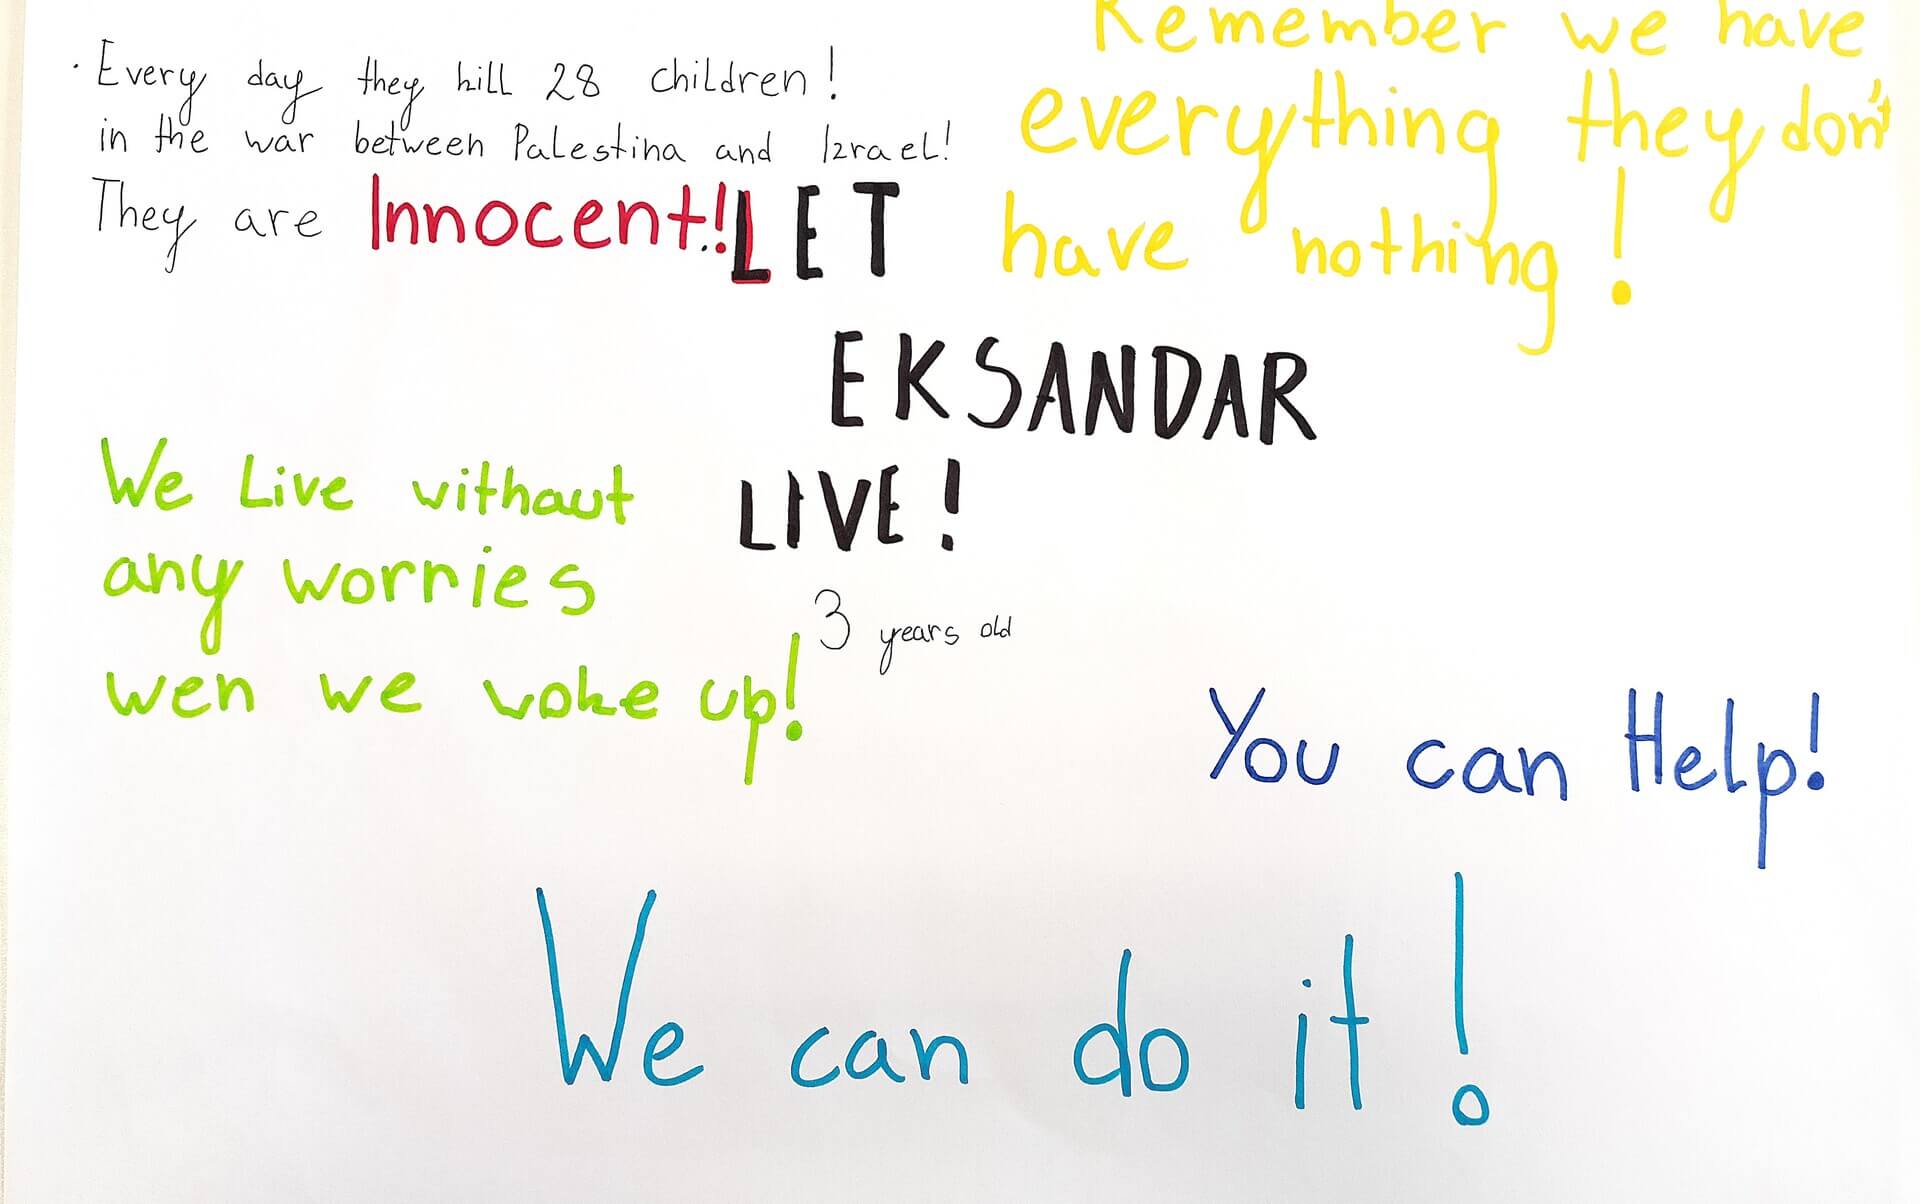 · Every day they kill 28 children!
in the war between Palestina and Izrael!
They are Innocent!!
Remember we have
everything they don't
have nothing!
LET
EKSANDAR
LIVE!
3 years old
We Live without
any worries
wen we woke up!
You can Help!
We can do it!